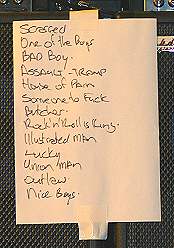 Scarred
One of the Boys
BAD Boy.
ASSAULT - TRAMP
House of Pain
Someone to Fuck
Butcher
Rock'n'Roll is King.
Illustrated MAN
Lucky
Union MAN
Outlaw
Nice Boys.